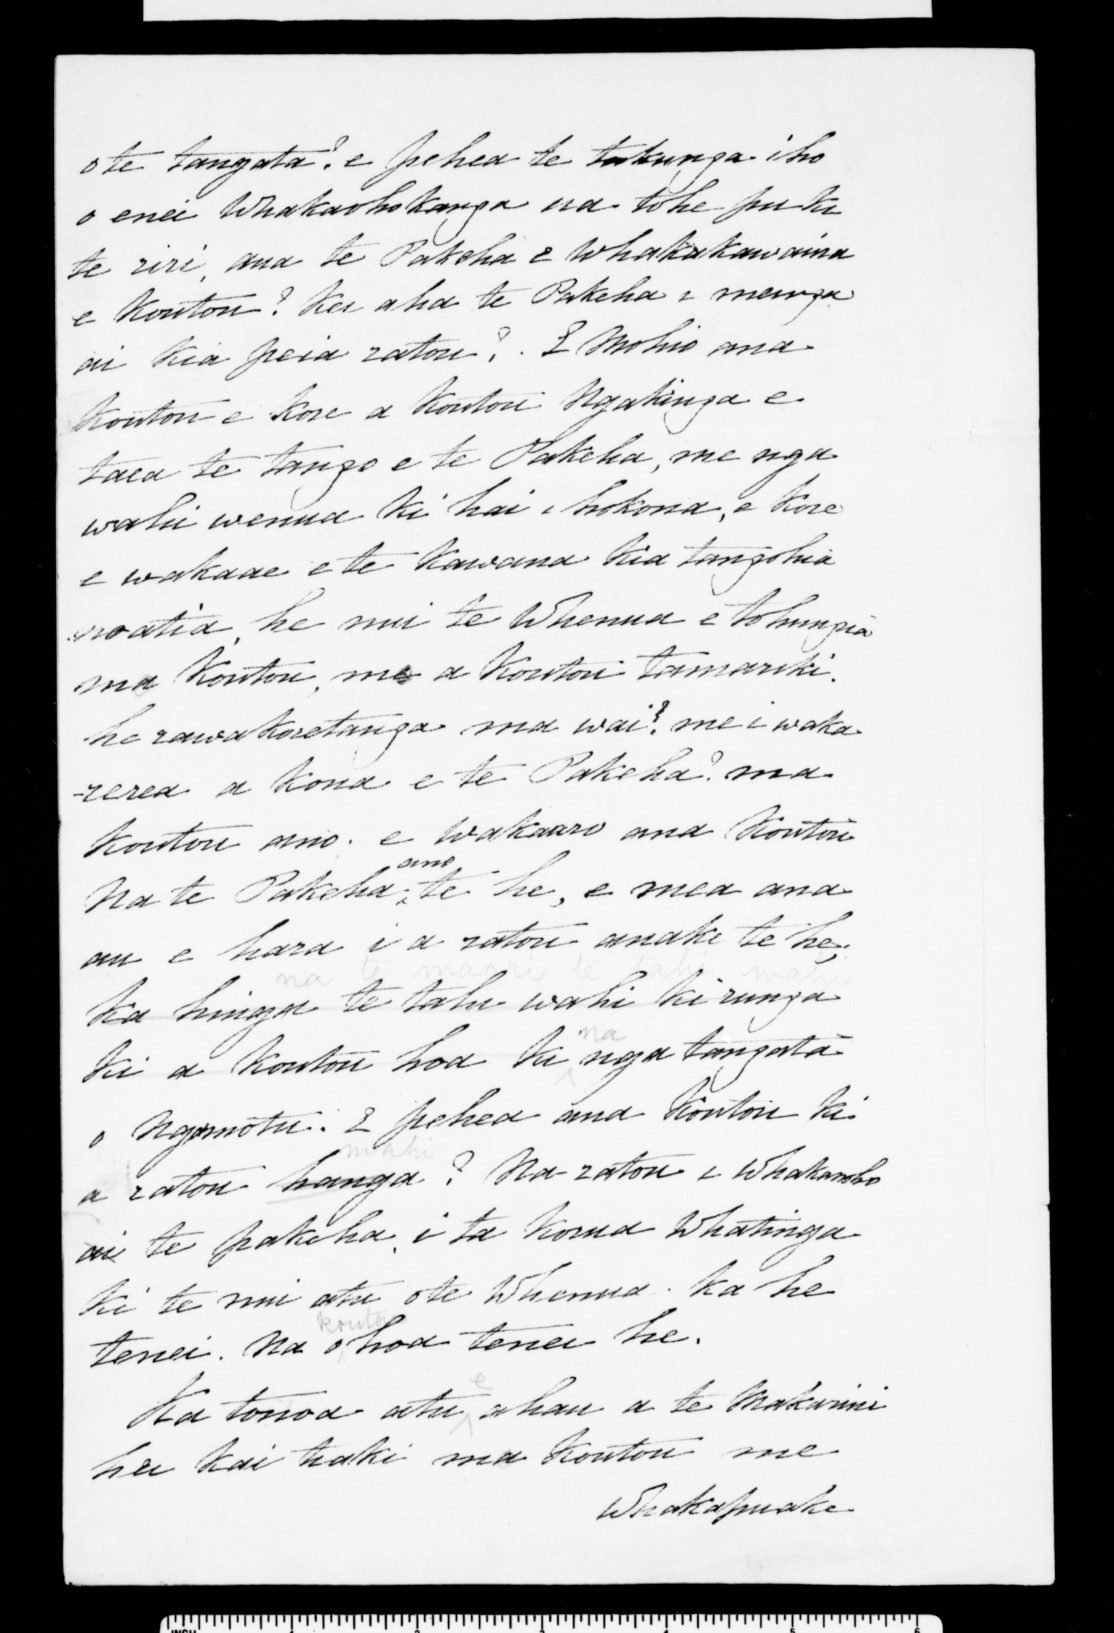 o te tangata? e pehea te takunga iho
o enei Whakaohokanga na tohe pu ki
te riri, ana te Pakeha e Whakakawaina
e Koutou? Kei aha te Pakeha i meinga
ai Kia peia ratou?. E Mohio ana
Koutou e Kore a Koutou Ngakinga e
taea te tango e te Pakeha, me nga
wahi wenua Ki hai i hokona, e Kore
e wakaae e te Kawana Kia tangohia
noatia, he nui te Whenua e tohungia
ma Koutou, me a Koutou tamariki.
he rawakoretanga ma wai? me i waka
-rerea a Kona e te Pakeha? ma
Koutou ano. e Wakaaro ana Koutou
ano
Na te Pakeha te he, e mea ana
au e hara i a ratou anake te he;
na te maori te tahi wahi
Ka hinga te tahi wahi Ki runga
na
Ki a Koutou hoa Ki nga tangata
o Ngamotu. E pehea ana Koutou Ki
mahi
a ratou hanga? Na ratou i Whakaoho
ai te pakeha, i ta Korua Whatinga
Ki te nui atu o te Whenua. Ka he
koutou
tenei. Na o hoa tenei he.
e
Ka tonoa atu ahau a te Makarini
hei Kai tiaki ma Koutou me
Whakapuake